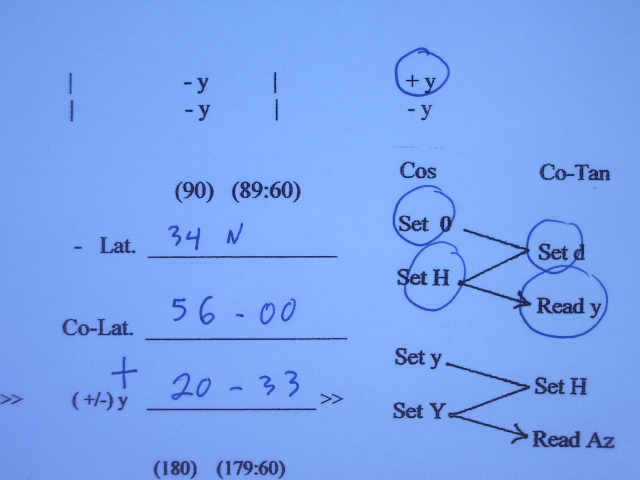 | - y | + y
| - y | - y
Cos Co-Tan
(90) (89:60)
Set 0
- Lat. 34 N
Set d
Set H
Read y
Co-Lat. 56 - 00
Set y
+
(+/-) y 20 - 33 >>
>>
Set H
Set Y
Read Az
(180) (179:60)